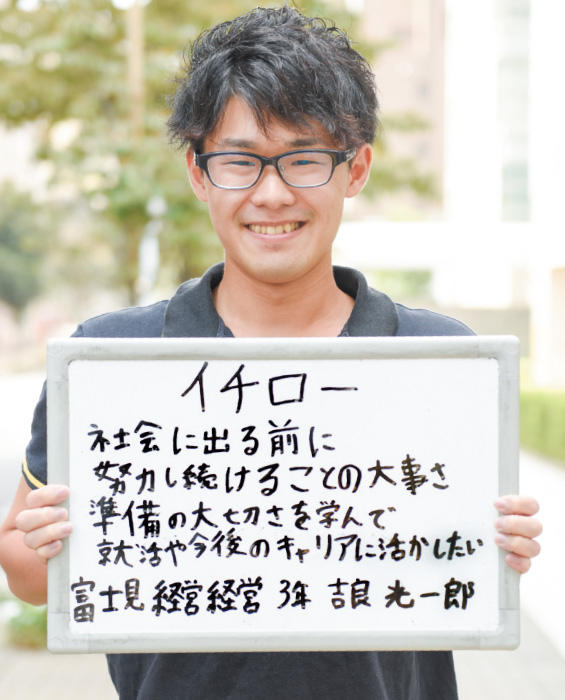 イチロー
社会に出る前に
努力し続けることの大事さ
準備の大切さを学んで
就活や今後のキャリアに活かしたい
富士見 経営経営 3年 吉良 光一郎